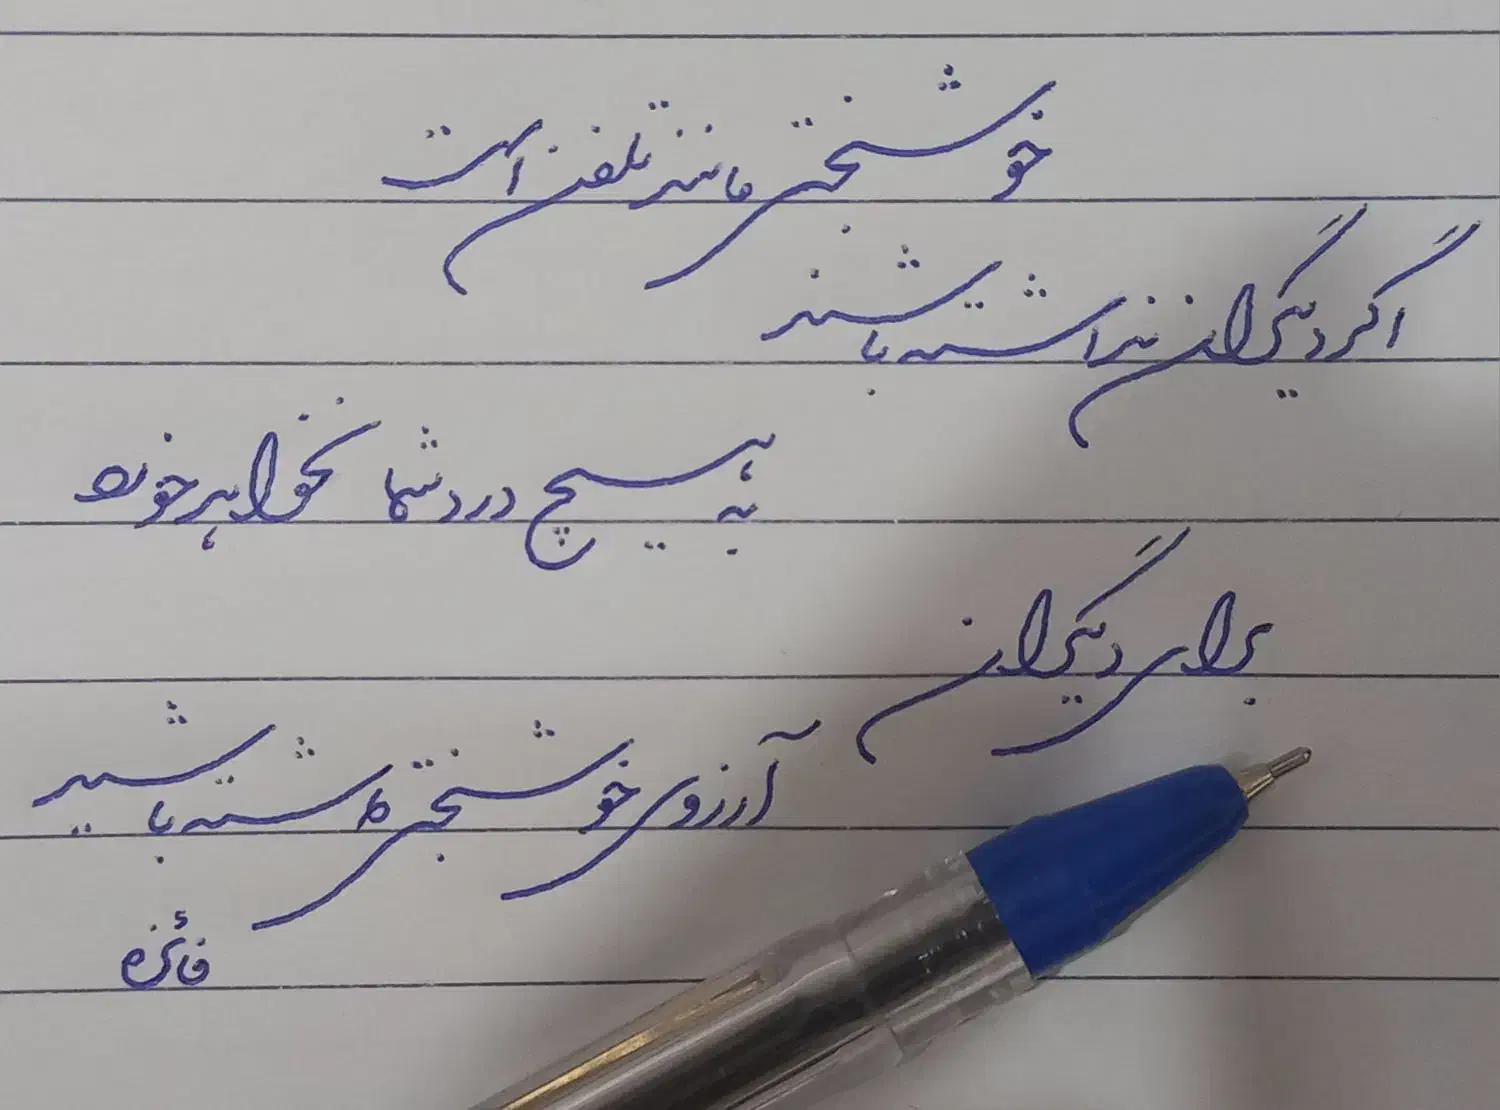 خوشبختی مانند تلفن است
اگر دیگران نداشته باشند
به هیچ درد شما نخواهد خورد
برای دیگران
آرزوی خوشبختی داشته باشید
فائزه